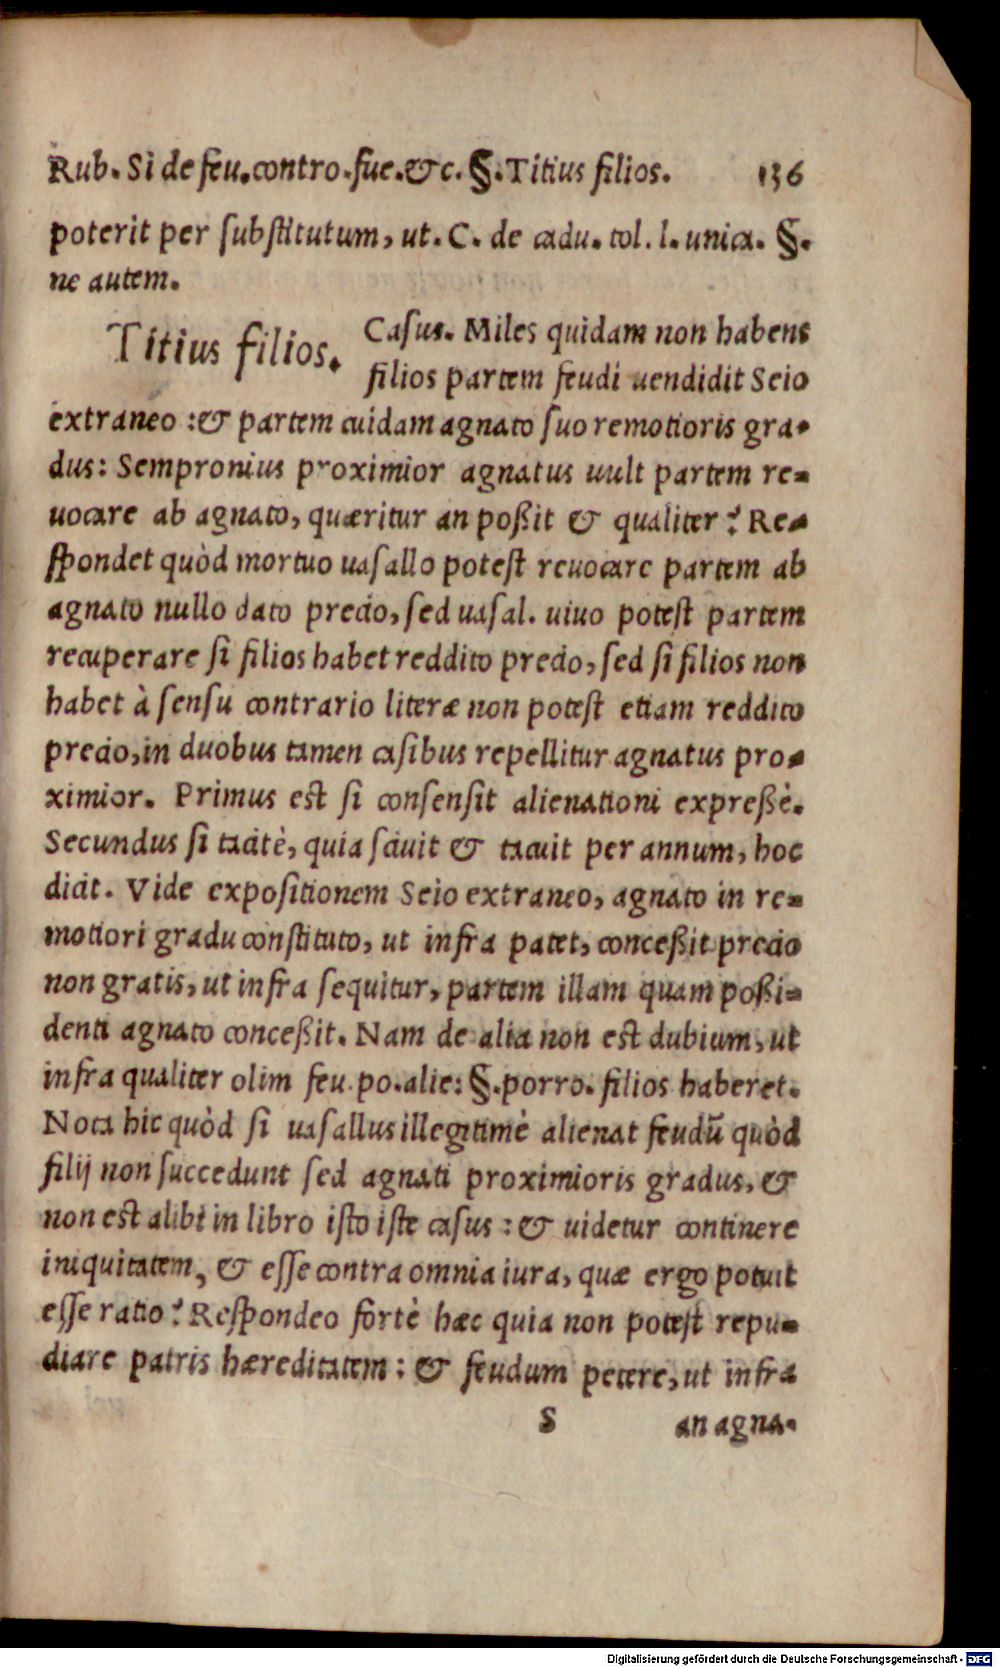 Rub. Si de feu. contro. fue. &c. §. Titius filios. 136
poterit per substitutum, ut. C. de cadu. tol. l. unica. §.
ne autem.
Titius filios.
Casus. Miles quidam non habens
filios partem feudi uendidit Seio
extraneo : & partem cuidam agnato suo remotioris gra-
dus: Sempronius proximior agnatus uult partem re-
uocare ab agnato, quæritur an poßit & qualiter? Re-
spondet quòd mortuo uasallo potest reuocare partem ab
agnato nullo dato precio, sed uasal. uiuo potest partem
recuperare si filios habet reddito precio, sed si filios non
habet à sensu contrario literæ non potest etiam reddito
precio, in duobus tamen casibus repellitur agnatus pro-
ximior. Primus est si consensit alienationi expreßè.
Secundus si tacitè, quia sciuit & tacuit per annum, hoc
dicit. Vide expositionem Seio extraneo, agnato in re-
motiori gradu constituto, ut infra patet, conceßit precio
non gratis, ut infra sequitur, partem illam quam poßi-
denti agnato conceßit. Nam de alia non est dubium, ut
infra qualiter olim feu. po. alie: §. porro. filios haberet.
Nota hic quòd si uasallus illegitimè alienat feudū quòd
filij non succedunt sed agnati proximioris gradus, &
non est alibi in libro isto iste casus : & uidetur continere
iniquitatem, & esse contra omnia iura, quæ ergo potuit
esse ratio? Respondeo fortè hæc quia non potest repu-
diare patris hæreditatem : & feudum petere, ut infra
S an agna-
Digitalisierung gefördert durch die Deutsche Forschungsgemeinschaft - DFG